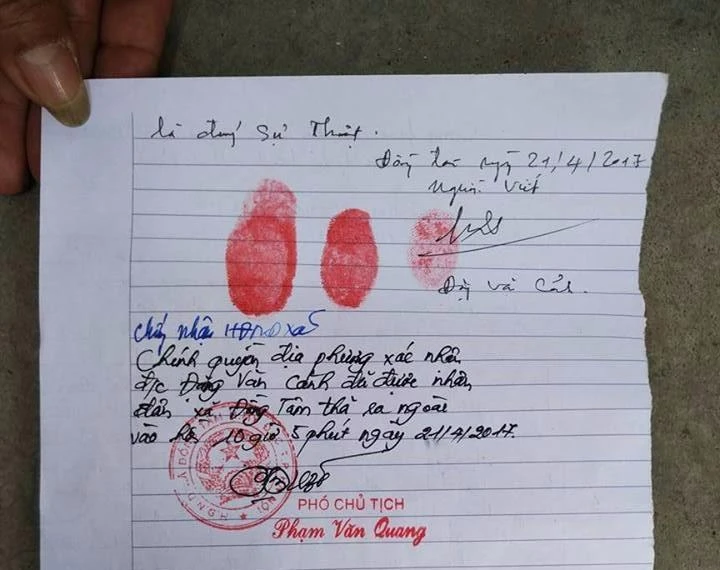 là đúng Sự Thật.
Đồng Tâm ngày 21/4/2017
Người viết
Đặng Văn Cảnh
Chứng nhận HĐND xã
Chính quyền địa phương xác nhận
đ/c Đặng Văn Cảnh đã được nhân
dân xã Đồng Tâm thả ra ngoài
vào hồi 10 giờ 5 phút ngày 21/4/2017.
PHÓ CHỦ TỊCH
Phạm Văn Quang